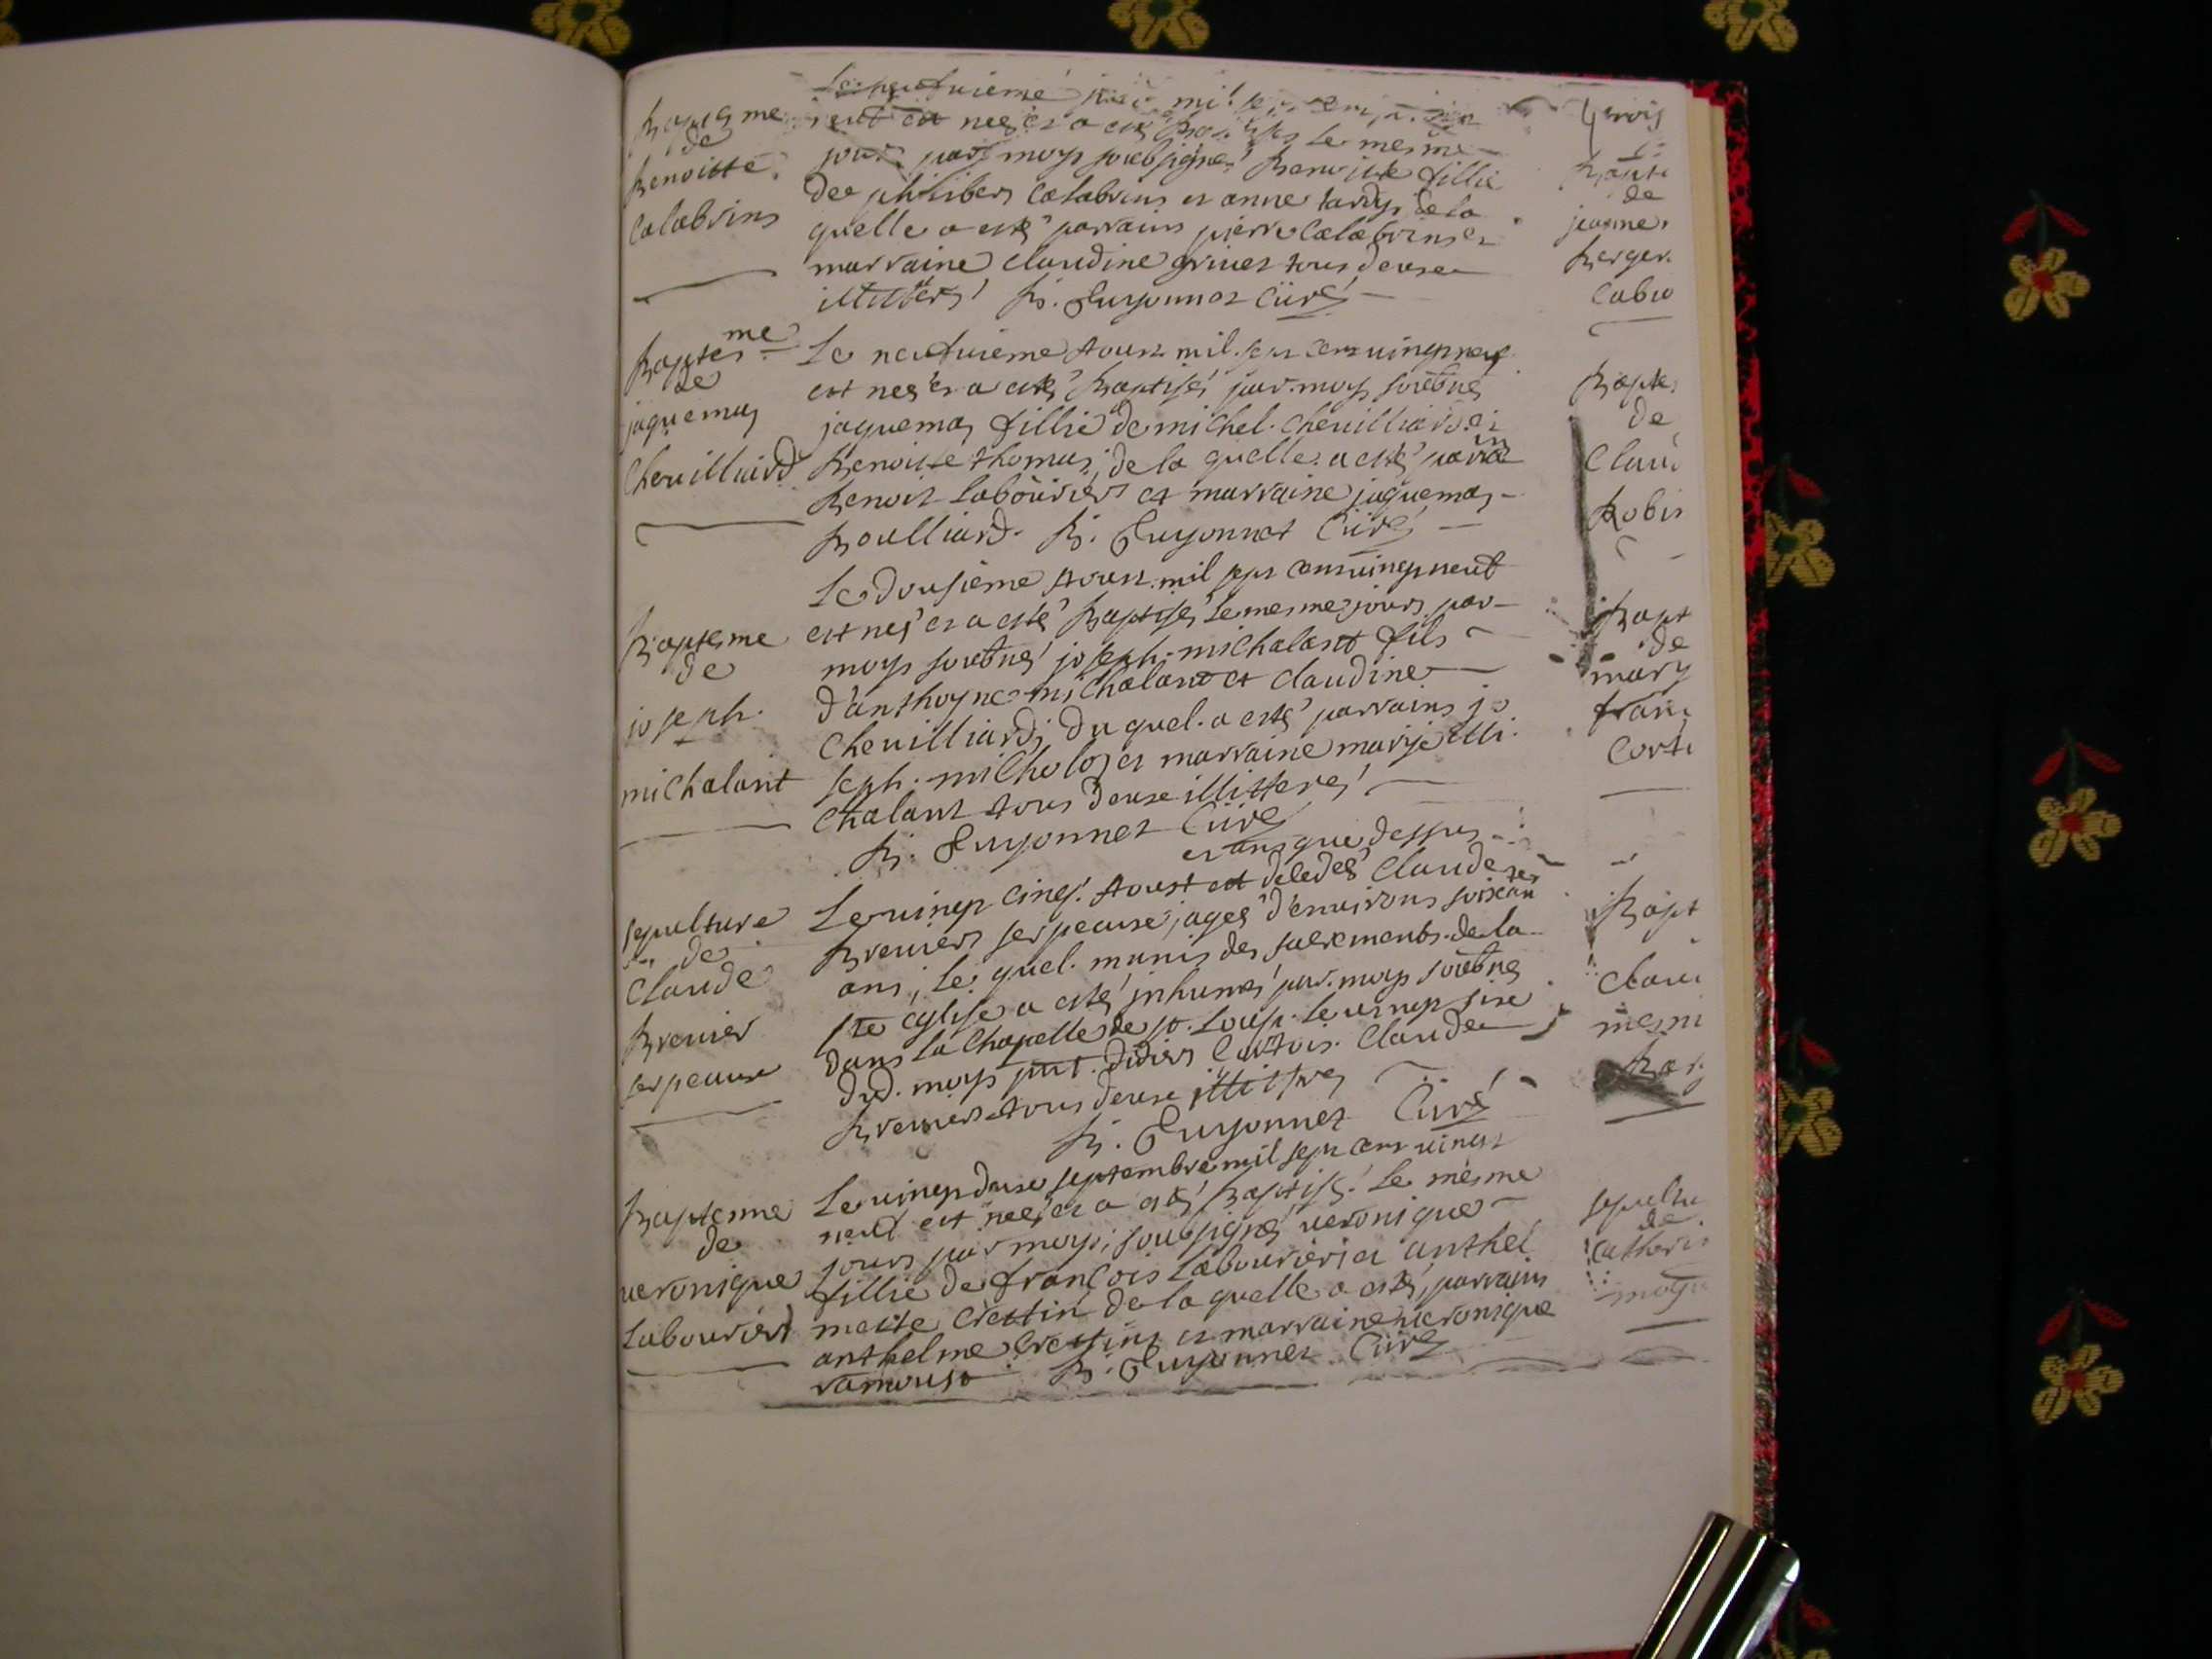 Baptesme
de
Benoitte
Calabrins
Le neufuieme mil
neuf est nee et a esté Baptisée Le mesme
jour par moys soubsigné Benoitte fillie
de philibers Calabrins et anne tardy de la
quelle a esté parrains pierre Calabrins et
marraine Claudine tous deuse
illitteré B. Guyonnet Curé
Baptesme
de
jaquemaz
Cheuilliard
Le neufuieme Aoust mil sept cent uingt neuf
est neé et a esté Baptisé par moys soubné
jaquemaz fillie de michel Cheuilliard et
Benoitte thomas, de la quelle a esté parrain
Benoit Labouriers et marraine jaquemaz
Boulliard. B. Guyonnet Curé
Baptesme
de
joseph
michalant
Le dousieme Aoust mil sept cent uingt neuf
est neé et a esté Baptisé Le mesme jours par
moys soubné joseph michalant fils
d'anthoyne michalant et Claudine
Cheuilliard, du quel a esté parrains jo
seph michola et marraine marie mi
Chalant tous deuse illitteré
B. Guyonnet Curé
sepulture
de
Claude
Breuier
serpeause
et ans que dessus
Le uingt cinq Aoust est deledé Claude
Breuiers serpeause, ageé d'enuirons soixan
ans, Le quel munis des sacrements de la
ste eglise a esté inhumé par moys soubné
dans La Chapelle de st. Loup Le uingt sixe
dud. moys pnt. didiers Curtois Claude
Breuiers tous deuse illitré
B. Guyonnet Curé
Baptesme
de
ueronique
Labouriers
Le uingt deuse septembre mil sept cent uingt
neuf est neé et a esté Baptisé Le mesme
jours par moys, soubsigné ueronique
fillie de françois Labouriers et anthel
mette Crettin de la quelle a esté parrains
anthelme Crettins et marraine ueronique
ramouse B. Guyonnet Curé
de
jeanne
Berger
de
Claud
Robin
Bapt
de
mary
fran
Bapt
Clau
sepultu
de
Catherin